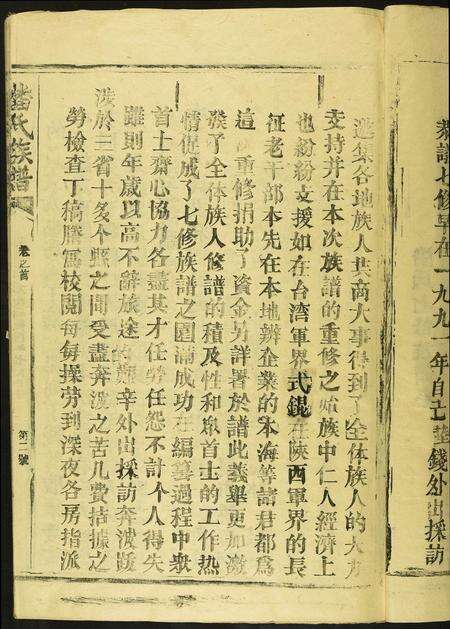 參譜七修早在一九九一年自己墊錢外出採訪
邀集各地族人共商大事得到了全体族人的大力
支持并在本次族譜的重修之始族中仁人經濟上
也紛紛支援如在台湾軍界式錕在陝西軍界的長
征老干部本先在本地辦企業的本海等諸君都爲
這次重修捐助了資金另詳署於譜此義舉更加激
發了全体族人修譜的積及性和眾首士的工作热
情促成了七修族譜之圆滿成功在編篡過程中衆
首士齋心協力各盡其才任勞任怨不計个人得失
雖則年歲以高不辭旅途的艱辛外出採訪奔波跋
涉於三省十多个縣之間受盡奔波之苦几費拮據之
勞檢查丁稿謄寫校閱每每操劳到深夜各房指派
氏族譜
卷之首
第二號